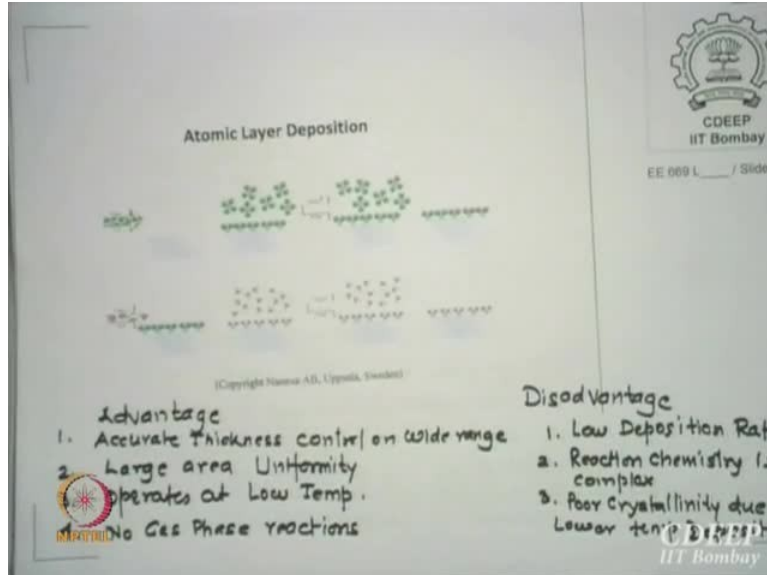 CDEEP
IIT Bombay
EE 669 L____/ Slide
Atomic Layer Deposition
(Copyright Nanexa AB, Uppsala, Sweden)
Advantage
1. Accurate Thickness control on wide range
2. Large area Uniformity
3. Operates at Low Temp.
4. No Gas Phase reactions
Disadvantage
1. Low Deposition Rat
2. Reaction Chemistry i
complex
3. Poor Crystallinity due
Lower temp Deposit
NPTEL
CDEEP
IIT Bombay